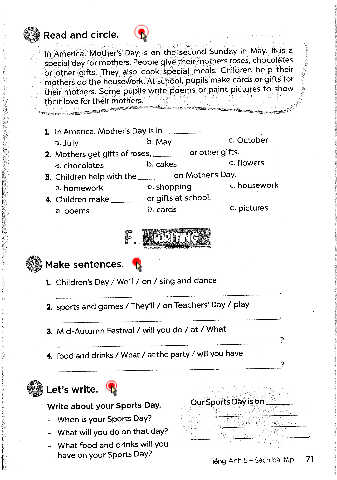 Read and circle.
In America, Mother's Day is on the second Sunday in May. It is a
special day for mothers. People give their mothers roses, chocolates
or other gifts. They also cook special meals. Children help their
mothers do the housework. At school, pupils make cards or gifts for
their mothers. Some pupils write poems or paint pictures to show
their love for their mothers.
1. In America, Mother's Day is in ______
a. July b. May c. October
2. Mothers get gifts of roses, ______ or other gifts.
a. chocolates b. cakes c. flowers
3. Children help with the ______ on Mother's Day.
a. homework b. shopping c. housework
4. Children make ______ or gifts at school.
a. poems b. cards c. pictures
F. WRITING
Make sentences.
1. Children's Day / We'll / on / sing and dance
2. sports and games / They'll / on Teachers' Day / play
3. Mid-Autumn Festival / will you do / at / What
?
4. food and drinks / What / at the party / will you have
?
Let's write.
Write about your Sports Day.
- When is your Sports Day?
- What will you do on that day?
- What food and drinks will you
have on your Sports Day?
Our Sports Day is on
Tiếng Anh 5 - Sách bài tập 71